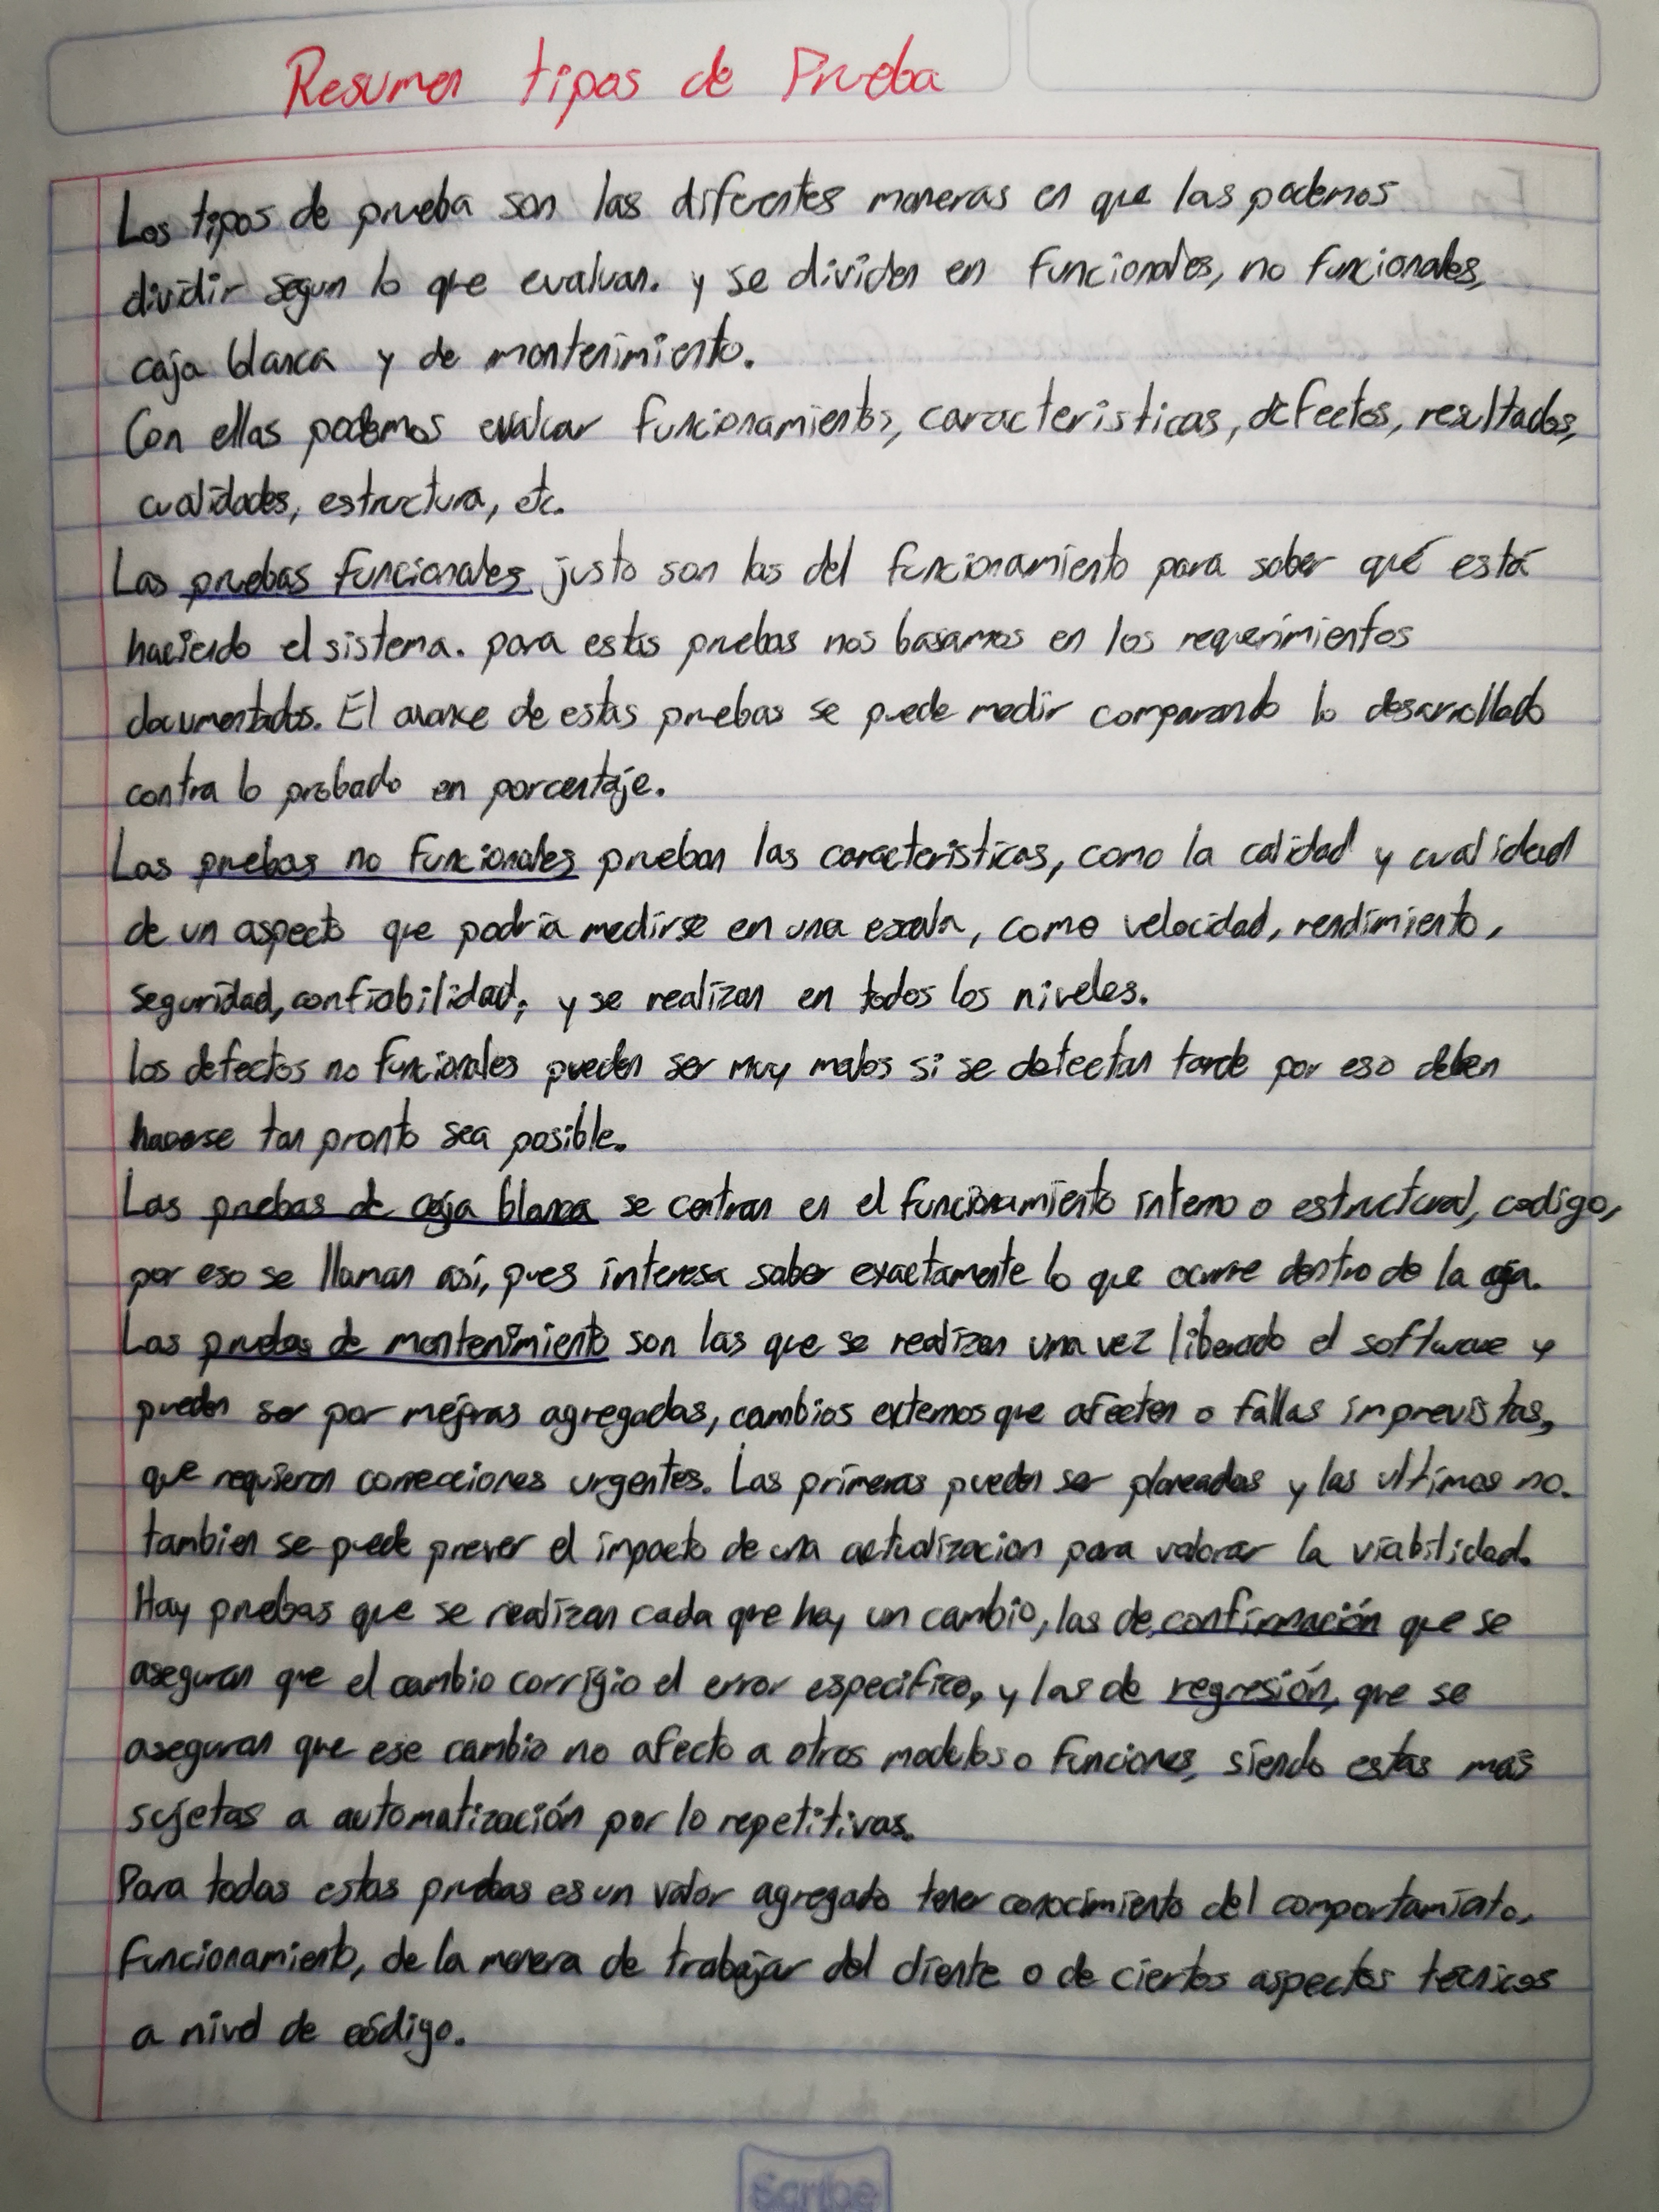 Resumen tipos de Prueba
Los tipos de prueba son las diferentes maneras en que las podemos
dividir segun lo que evaluan. y se dividen en funcionales, no funcionales,
caja blanca y de mantenimiento.
Con ellas podemos evaluar funcionamientos, caracteristicas, defectos, resultados,
cualidades, estructura, etc.
Las pruebas funcionales justo son las del funcionamiento para saber qué está
haciendo el sistema. para estas pruebas nos basamos en los requerimientos
documentados. El avance de estas pruebas se puede medir comparando lo desarrollado
contra lo probado en porcentaje.
Las pruebas no funcionales prueban las caracteristicas, como la calidad y cualidad
de un aspecto que podría medirse en una escala, como velocidad, rendimiento,
seguridad, confiabilidad, y se realizan en todos los niveles.
los defectos no funcionales pueden ser muy malos si se detectan tarde por eso deben
hacerse tan pronto sea posible.
Las pruebas de caja blanca se centran en el funcionamiento interno o estructural, codigo,
por eso se llaman así, pues interesa saber exactamente lo que ocurre dentro de la caja.
Las pruebas de mantenimiento son las que se realizan una vez liberado el software y
pueden ser por mejoras agregadas, cambios externos que afecten o fallas imprevistas,
que requieren correcciones urgentes. Las primeras pueden ser planeadas y las ultimas no.
tambien se puede prever el impacto de una actualizacion para valorar la viabilidad.
Hay pruebas que se realizan cada que hay un cambio, las de confirmación que se
aseguran que el cambio corrigio el error especifico, y las de regresión, que se
aseguran que ese cambio no afecto a otros modelos o funciones, siendo estas mas
sujetas a automatización por lo repetitivas.
Para todas estas pruebas es un valor agregado tener conocimiento del comportamiento,
funcionamiento, de la manera de trabajar del cliente o de ciertos aspectos tecnicos
a nivel de código.
Scribe